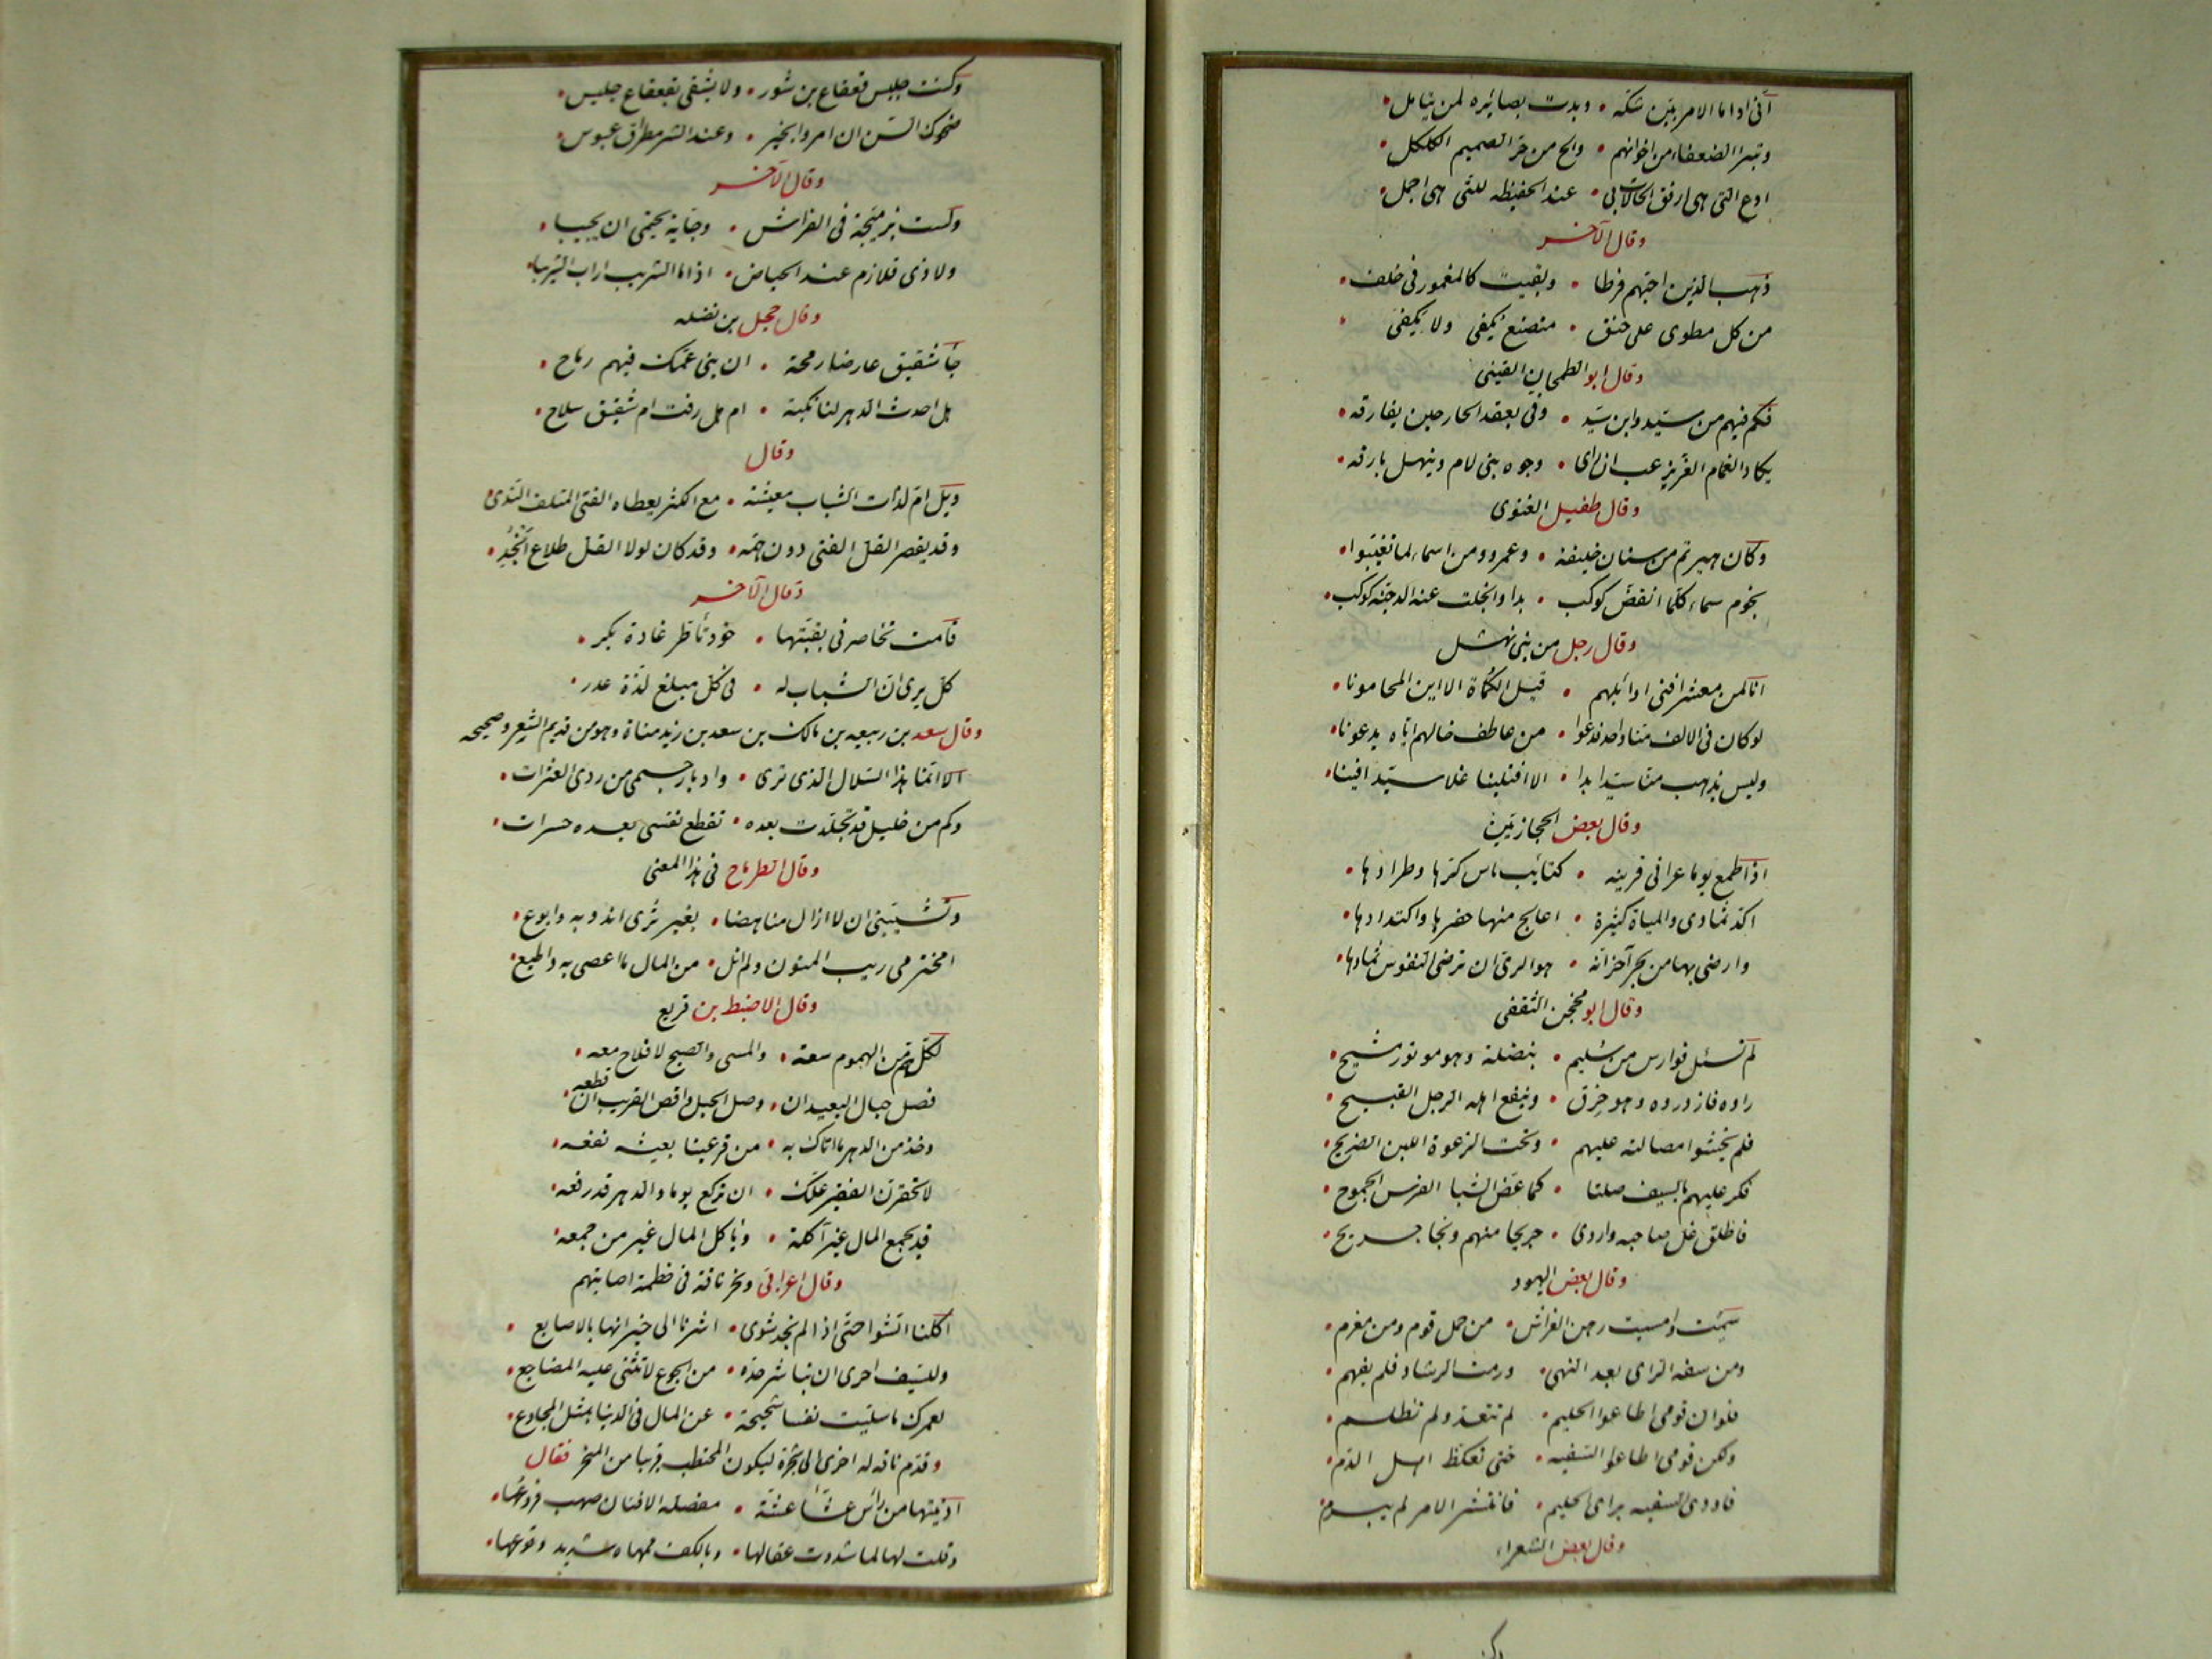 انى اذا ما الامر بيّن شكّه • وبدت بصائره لمن يتامل •
وتبرا الضعفاء من اخوانهم • والح من حرّ الصميم الكلكل •
ادع التى هى ارفق الحالات بى • عند الحفيظه للتى هى اجمل •
وقال الآخر
ذهب الذين احبّهم فرطا • وبقيت كالمغمور فى خلف •
من كل مطوى على حنق • متصنع يكفى ولا يكفى •
وقال ابو الطمحان القينى
فكم فيهم من سيّد وابن سيّد • وفى بعقد الجار حين يفارقه •
يكاد الغمام الغرّ يرعب ان راى • وجوه بنى لام وينهل بارقه •
وقال طفيل الغنوى
وكان هريم من سنان خليفة • وعمرو ومن اسماء لما تغيّبوا •
نجوم سماء كلّما انقضّ كوكب • بدا وانجلت عنه الدجنّة كوكب •
وقال رجل من بنى نهشل
انا لمن معشر افنى اوائلهم • قيل الكُماة الا اين المحامونا •
لو كان فى الالف منّا واحد فدعوا • من عاطف خالهم ايّاه يدعونا •
وليس يذهب منّا سيّد ابدا • الا افتلينا غلاما سيّدا فينا •
وقال بعض الحجازيّين
اذا طمع يوما عرانى قريته • كتائب ياس كرّها وطرادها •
اكدّ ثمادى والمياة كثيرة • اعالج منها حفرها واكتدادها •
وارضى بها من بحر آخر انّه • هو الرىّ ان ترضى النفوس ثمادها •
وقال ابو محجن الثقفى
لم تسئل فوارس من سُليم • بنضلة وهو موتور مشيح •
راوه فازدروه وهو خرق • وينفع اهله الرجل القبيح •
فلم يخشوا مصالته عليهم • وتحت الرغوة اللبن الصريح •
فكر عليهم بالسيف صلتا • كما عضّ الشبا الفرس الجموح •
فاطلق غل صاحبه واردى • جريحا منهم ونجا جريح •
وقال بعض اليهود
سئمت وامسيت رهن الفراش • من حمل قوم ومن مغرم •
ومن سفه الراى بعد النهى • ورمت الرشاد فلم يفهم •
فلو ان قومى اطاعوا الحليم • لم تتعدّ ولم تظلم •
ولكن قومى اطاعوا السفيه • حتى تعكظ اهل الدم •
فاودى السفيه براى الحليم • فانتشر الامر لم يبرم •
وقال بعض الشعراء
وكنت جليس قعقاع بن شور • ولا يشقى بقعقاع جليس •
ضحوك السّن ان امروا بخير • وعند الشر مطراق عبوس •
وقال الآخر
ولست بزميّجة فى الفراش • وجّابة يحتمى ان يجيبا •
ولا ذى قلازم عند الحياض • اذا ما الشريب اراب الشريبا •
وقال حجل بن نضله
جاء شقيق عارضا رمحه • ان بنى عمّك فيهم رماح •
هل احدث الدهر لنا نكبة • ام هل رفت ام شقيق سلاح •
وقال
ويل امّ لذّات الشباب معيشة • مع الكثر يعطاه الفتى المتلف الندى
وقد يقصر القل الفتى دون همّه • وقد كان لولا القل طلاع انْجُدِ •
وقال الآخر
قامت تخاصر فى بقبّتها • خود تأطر غادة بكر •
كل يرى ان الشباب له • فى كلّ مبلغ لذّة عذر •
وقال سعد بن ربيعه بن مالك بن سعد بن زيد مناة وهو من قديم الشعر وصحيحه
الا انّما هذا السلال الذى ترى • وادبار جسمى من ردى العثرات •
وكم من خليل قد تجلّدت بعده • تقطع نفسى بعده حسرات •
وقال الطرماح فى هذا المعنى
وشيّبنى ان لا ازال مناهضا • بغير ثرى اثرو به وابوع •
امخترمى ريب المنون ولم انل • من المال ما اعصى به واطيع •
وقال الاضبط بن قريع
لكل همّ من الهموم سعة • والمسى والصبح لا فلاح معه •
فصل حبال البعيد ان • وصل الحبل واقص القريب ان قطعه •
وخذ من الدهر ما اتاك به • من قرّ عينا بعيشه نفعه •
لا تحقرن الفقير علّك • ان تركع يوما والدهر قد رفعه •
قد يجمع المال غير آكله • وياكل المال غير من جمعه •
وقال اعرابى ونحر ناقة فى حطمة اصابتهم
اكلنا الشوا حتى اذا لم نجد شوى • اشرنا الى خيراتها بالاصابع •
وللسّيف احرى ان تباشر حدّه • من الجوع لا تثنى عليه المضاجع •
لعمرك ما سليت نفسا شحيحة • عن المال فى الدنيا بمثل المجاوع •
وقدم ناقه له اخرى الى شجرة ليكون المحتطب قريبا من المنحر فقال
ادنيتها من راس عشّاء عشّة • مفصله الافنان صهب فروعها •
وقلت لها لما شددت عقالها • وبالكف ممهاه شديد وقوعها •